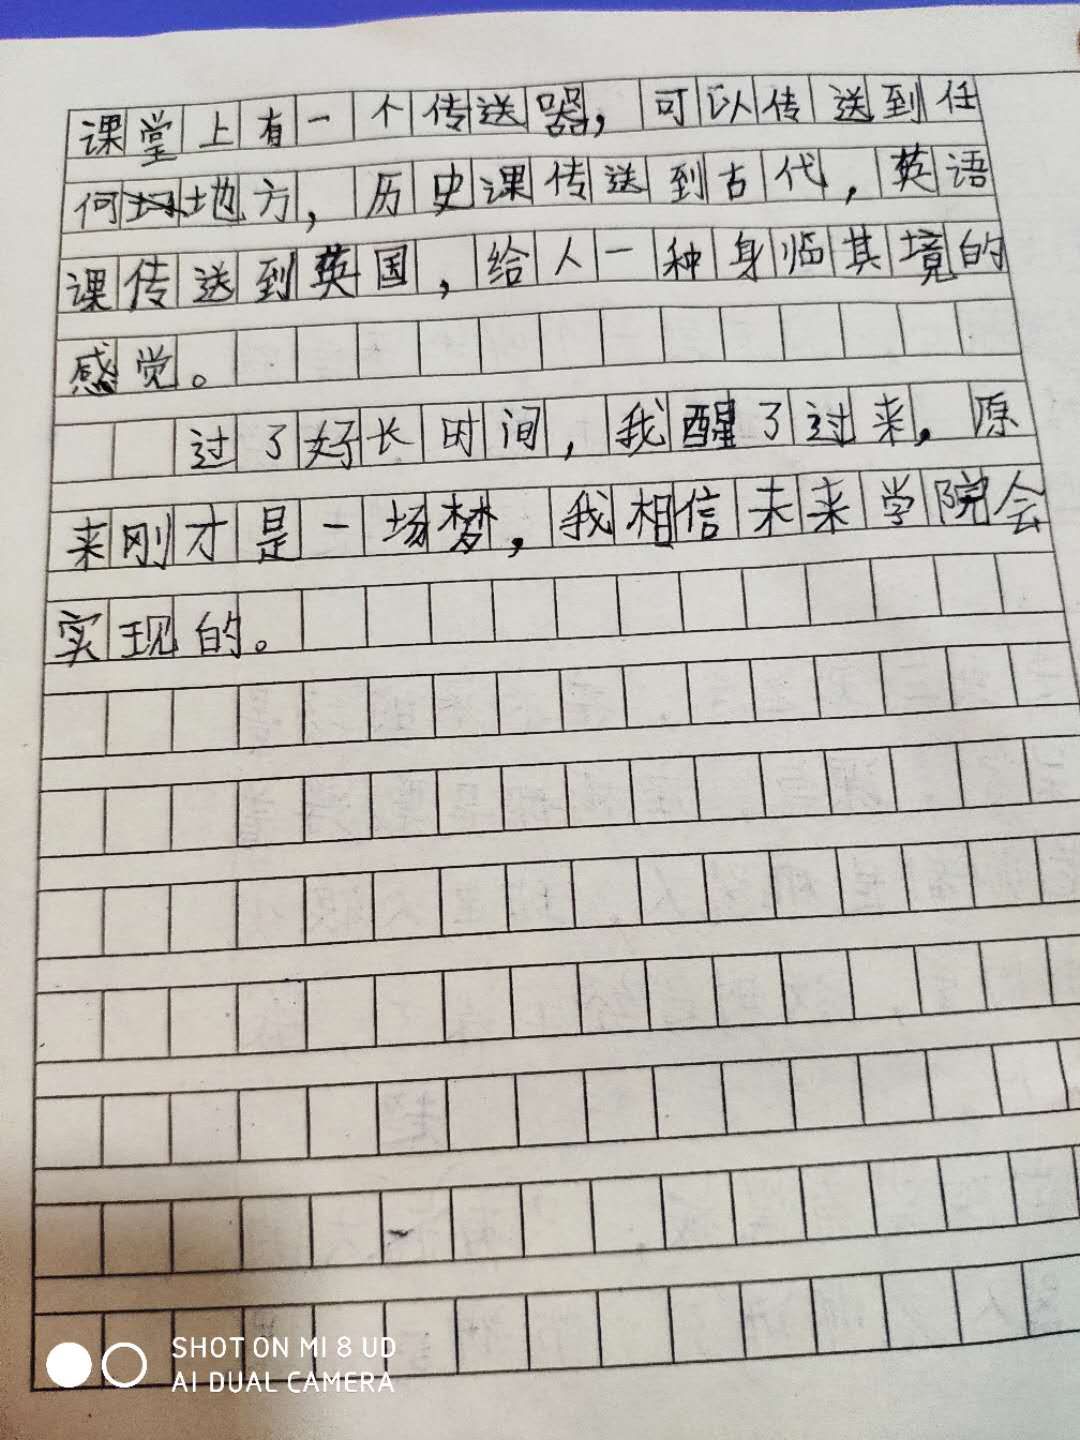 课堂上有一个传送器，可以传送到任
何地方，历史课传送到古代，英语
课传送到英国，给人一种身临其境的
感觉。
过了好长时间，我醒了过来，原
来刚才是一场梦，我相信未来学院会
实现的。
SHOT ON MI 8 UD
AI DUAL CAMERA